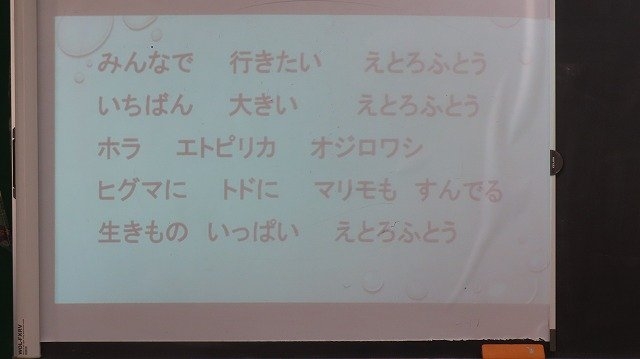 みんなで 行きたい えとろふとう
いちばん 大きい えとろふとう
ホラ エトピリカ オジロワシ
ヒグマに トドに マリモも すんでる
生きもの いっぱい えとろふとう